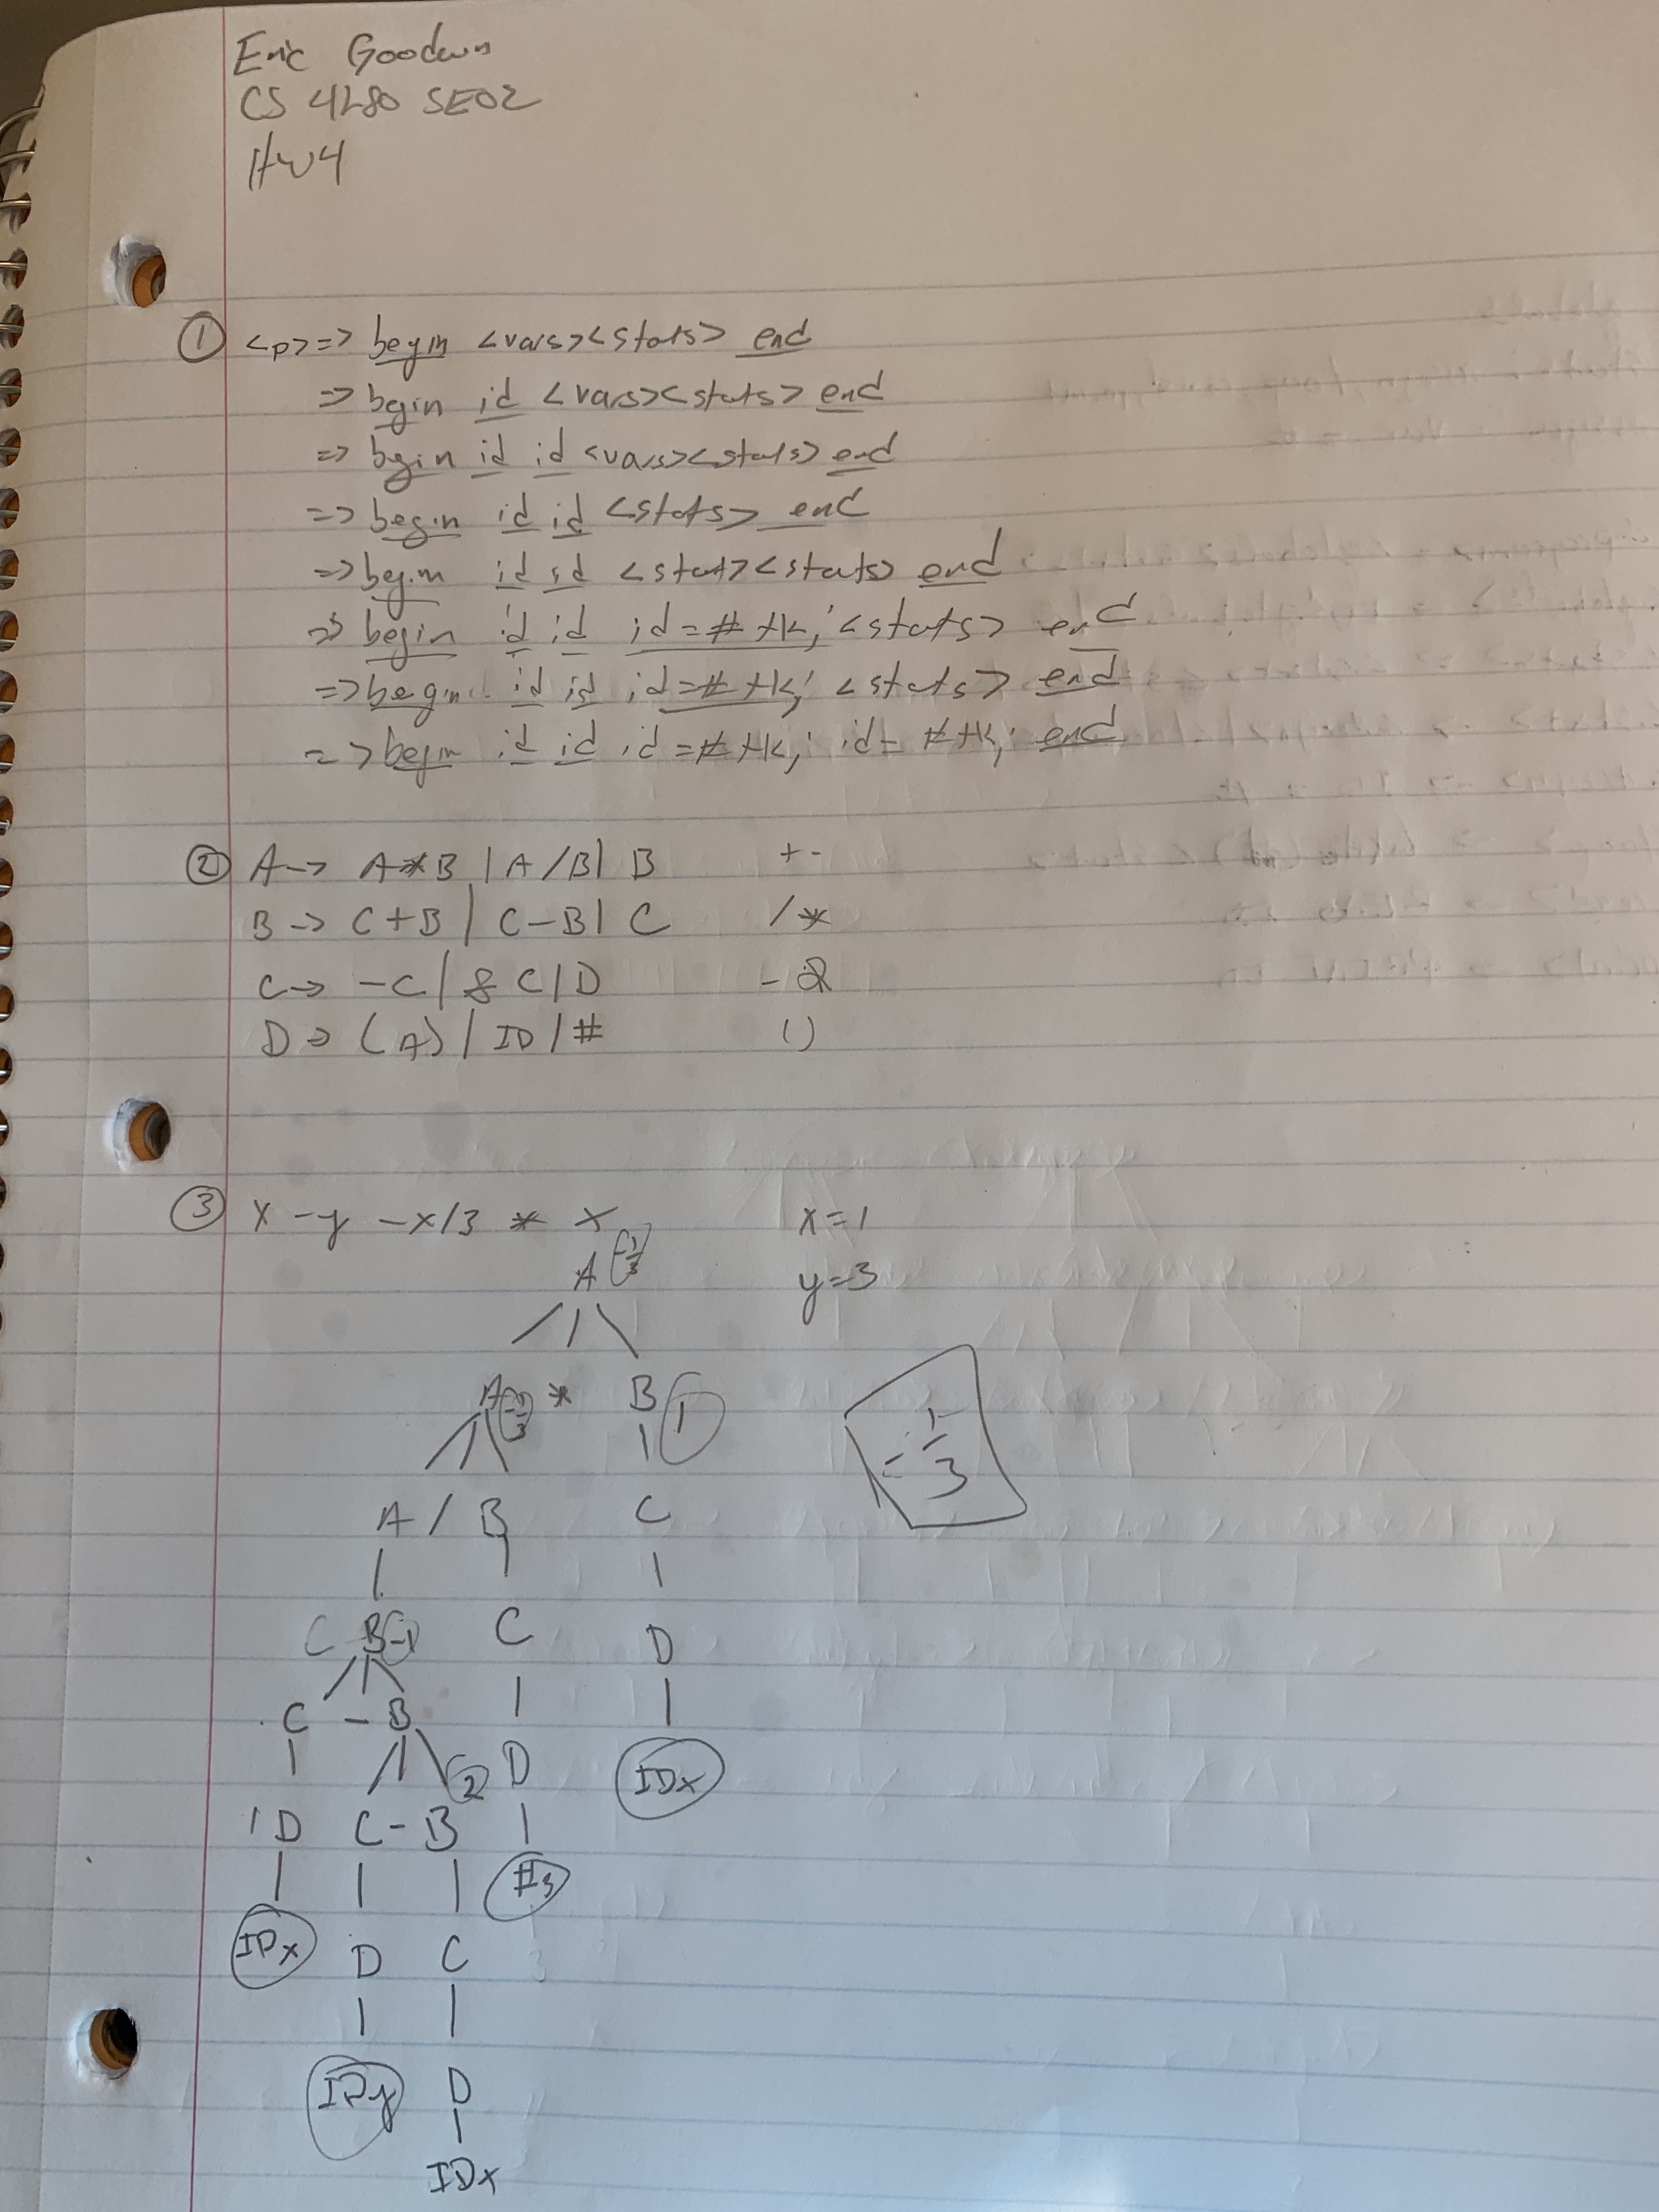 Eric Goodwin
CS 4280 SE02
HW4
① <p> => begin <vars><stats> end
=> begin id <vars><stats> end
=> bgin id id <vars><stats> end
=> begin id id <stats> end
=> begin id id <stat><stats> end
=> begin id id id=# tk; <stats> end
=> begin id id id=# tk; <stats> end
=> begin id id id=# tk; id= # tk; end
② A -> A*B | A/B | B + -
B -> C+B | C-B | C / *
C -> -C | & C | D - &
D -> (A) | ID | # ()
③ x - y - x/3 * x x=1
A -1/3 y=3
A -1/3 * B 1
-1/3
A / B C
C B -1 C D
C - B
2 D IDx
1 D C - B
#3
IDx D C
IDy D
IDx